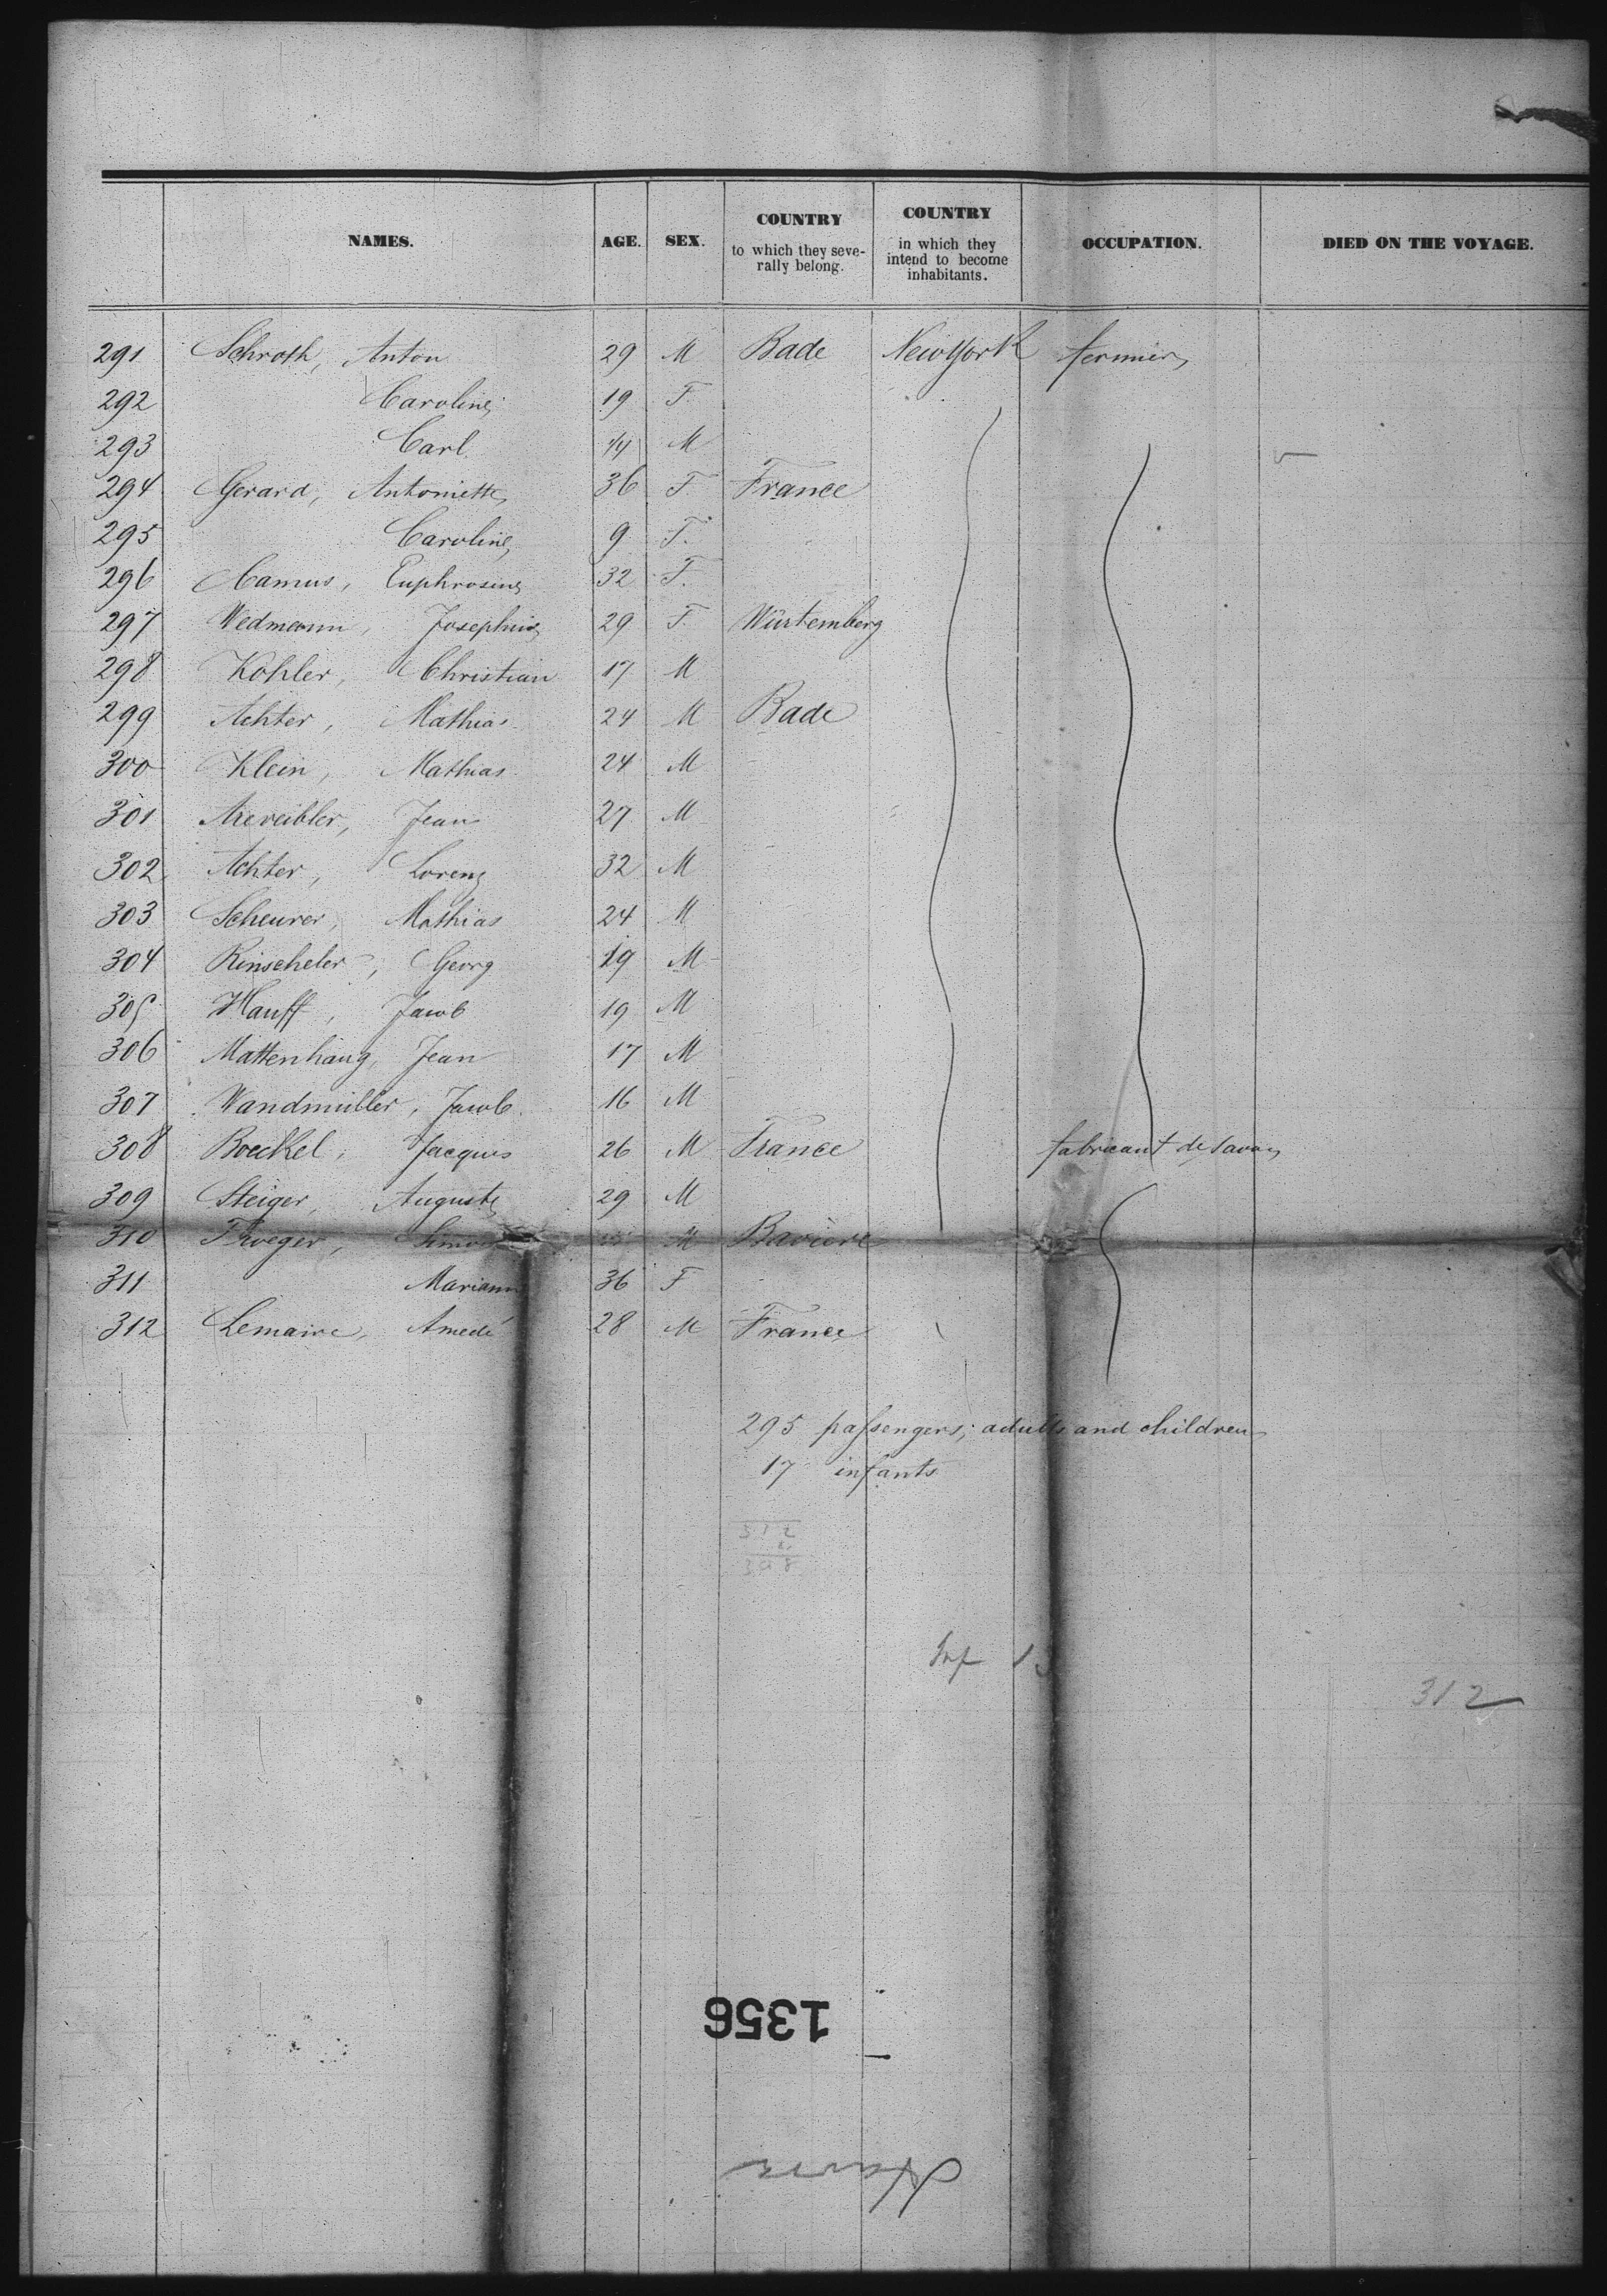 NAMES. AGE. SEX. COUNTRY to which they seve- rally belong. COUNTRY in which they intend to become inhabitants. OCCUPATION. DIED ON THE VOYAGE.
291 Schroth, Anton 29 M Bade New York fermier
292 Caroline 19 F
293 Carl M
294 Gerard, Antoniette 36 F. France
295 Caroline 9 F.
296 Camus, Euphrosine 32 F.
297 Wedmann, Josephine 29 F. Würtemberg
298 Kohler, Christian 17 M
299 Achter, Mathias 24 M Bade
300 Klein, Mathias 24 M
301 Jean 27 M
302 Achter, Lorenz 32 M
303 Scheurer, Mathias 24 M
304 Rinscheler, Georg 19 M
305 Hauff, Jacob 19 M
306 Mattenhaug, Jean 17 M
307 Wandmüller, Jacob 16 M
308 Boeckel, Jacques 26 M France fabricant de savon
309 Steiger, Auguste 29 M
310 Simon M Bavière
311 Mariann 36 F
312 Lemaire, Amedé 28 M France
295 passengers; adults and children
17 infants
312
Inf
312
1356
Havre